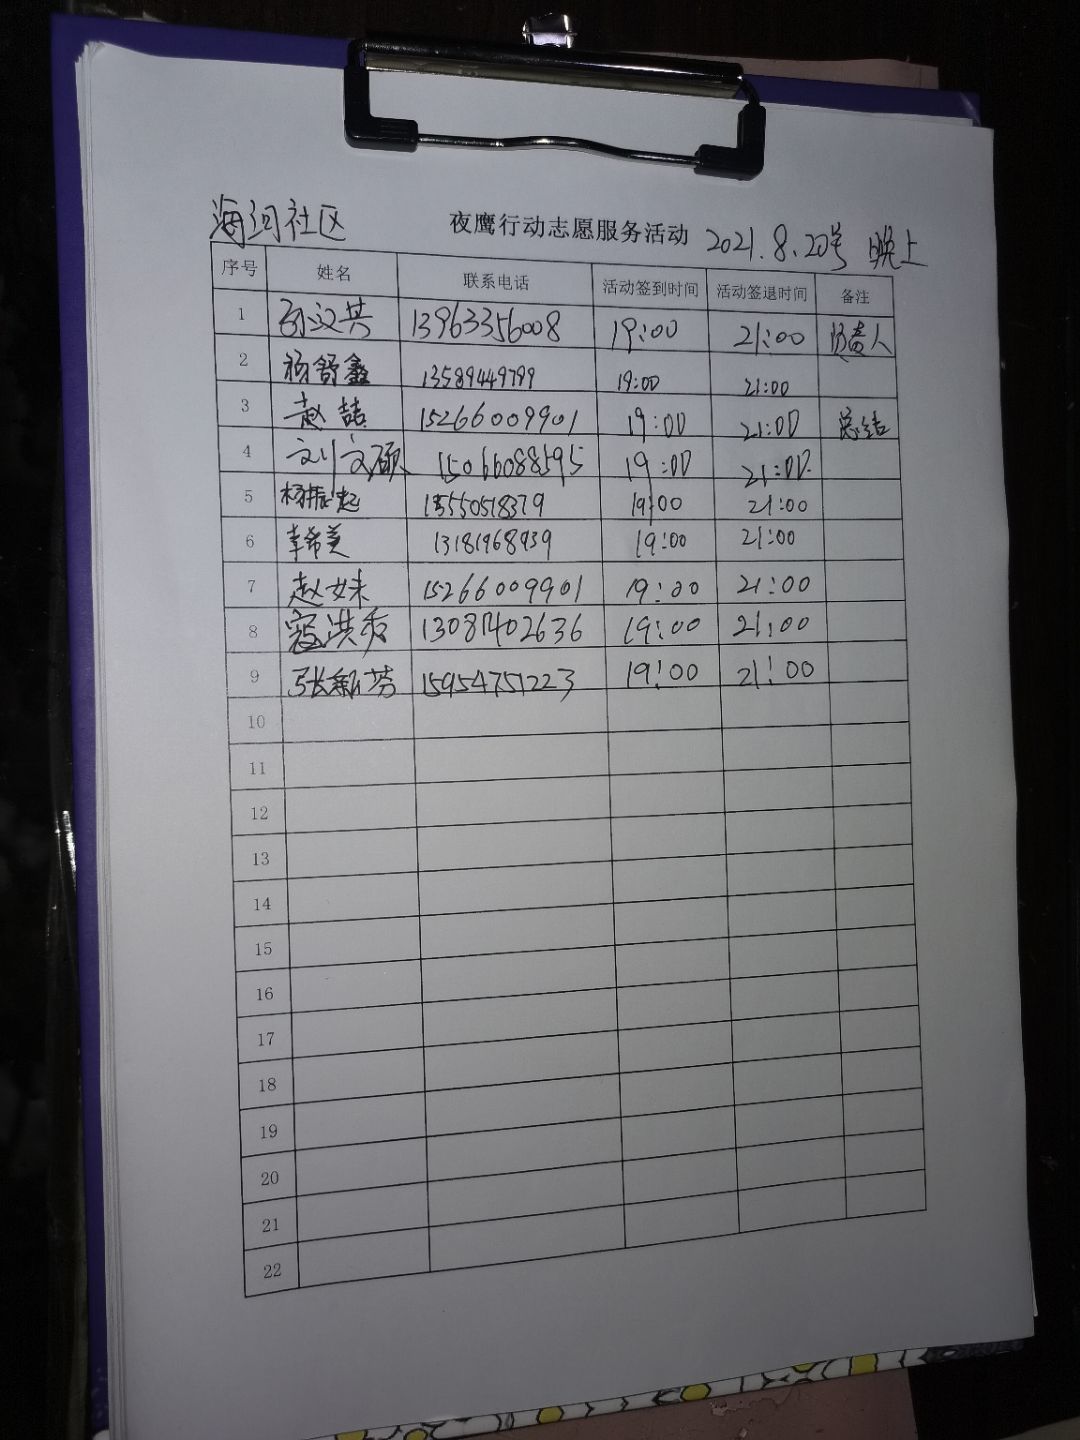 海河社区 夜鹰行动志愿服务活动 2021.8.20号 晚上
序号 姓名 联系电话 活动签到时间 活动签退时间 备注
1 孙汉共 13963356008 19:00 21:00 负责人
2 杨舒鑫 13589449799 19:00 21:00
3 赵喆 15266009901 19:00 21:00 总结
4 刘文硕 15066088595 19:00 21:00
5 杨振起 13550518379 19:00 21:00
6 李希美 13181968939 19:00 21:00
7 赵妹 15266009901 19:00 21:00
8 寇洪秀 13081402636 19:00 21:00
9 张新芬 15954751223 19:00 21:00
10
11
12
13
14
15
16
17
18
19
20
21
22